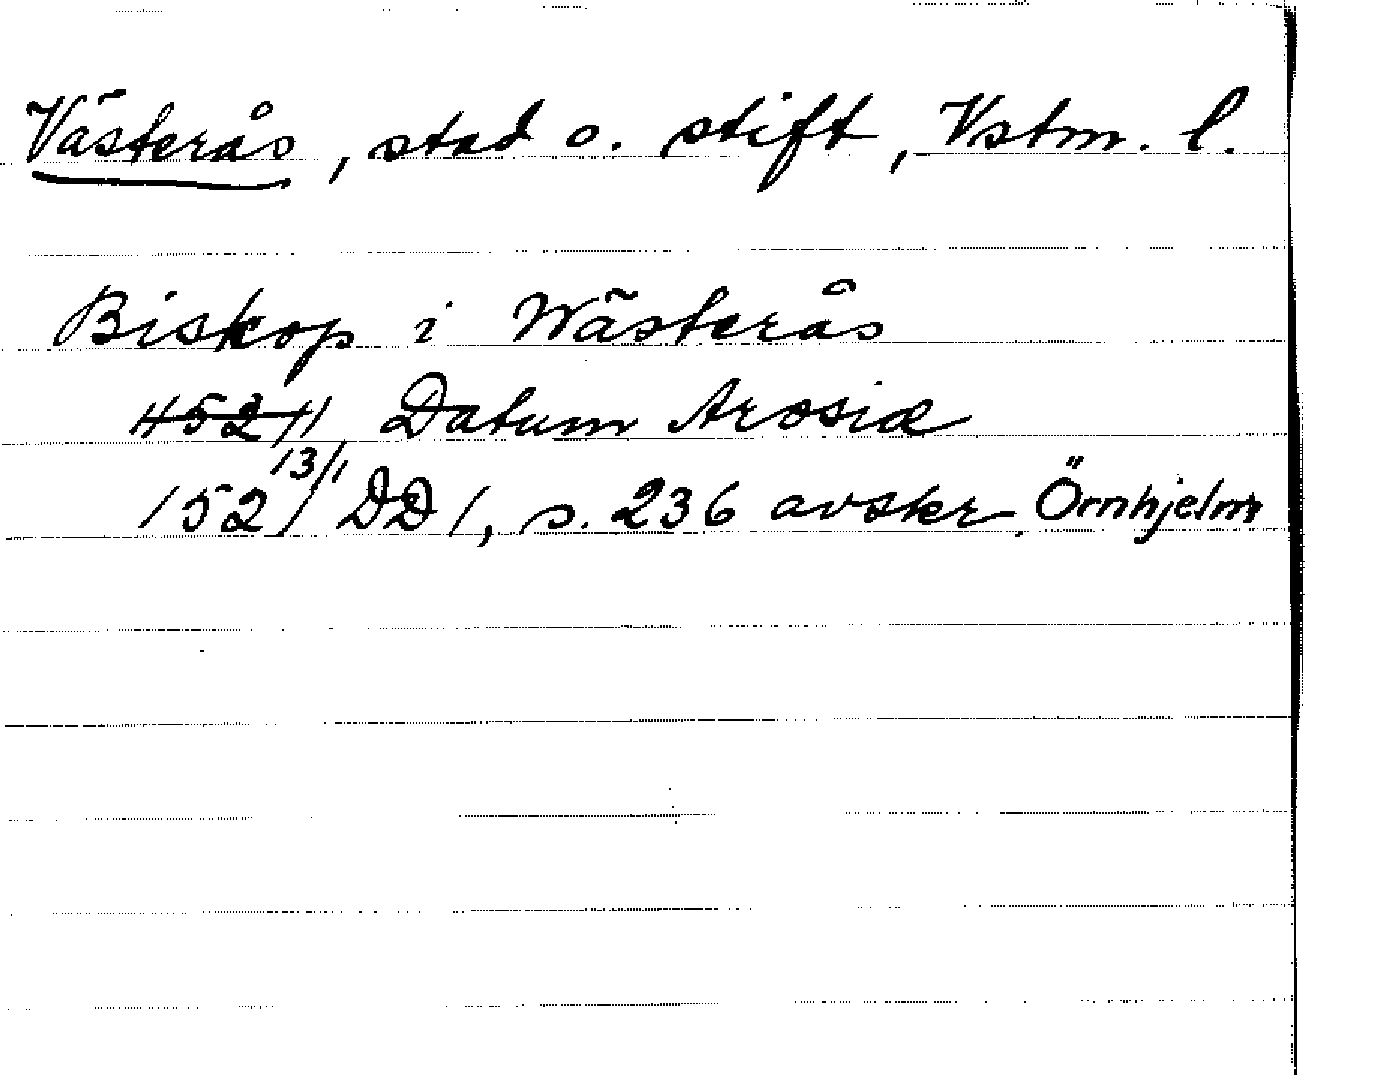 Västerås, stad o. stift, Vstm. l.
Biskop i Wästerås
1152 1/1 Datum Arosiæ
1152 13/1 DD 1, s. 236 avskr. Örnhjelm